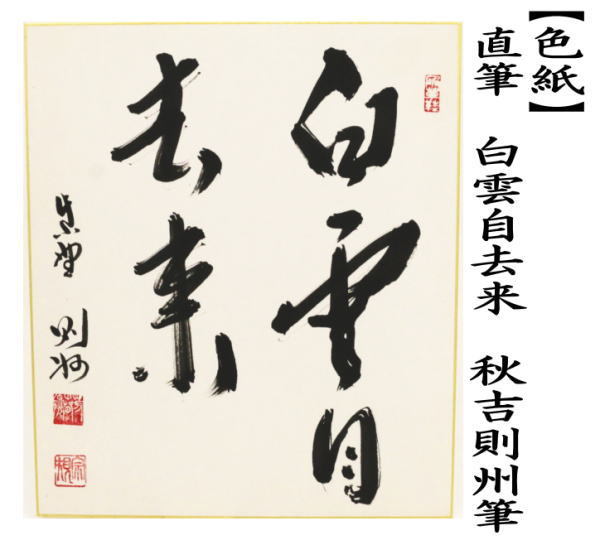 【色紙】
直筆 白雲自去来 秋吉則州筆
白雲自
去来
紫野 則州